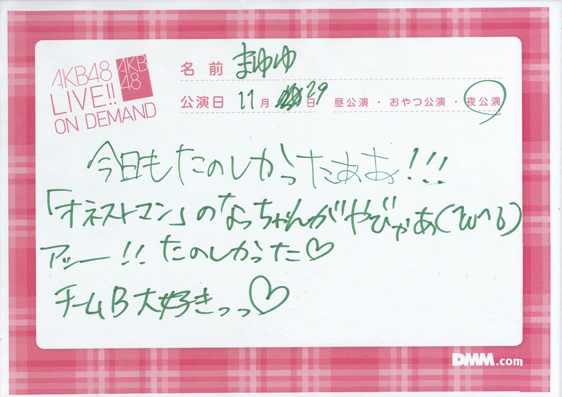 AKB48
LIVE!!
ON DEMAND
AKB
48
名前 まゆゆ
公演日 11月 29日 昼公演・おやつ公演・夜公演
今日もたのしかったぁぁ!!!
「オネストマン」のなっちゃんがやびゃあ
アッー!! たのしかった♡
チームB大好きっっ♡
DMM.com